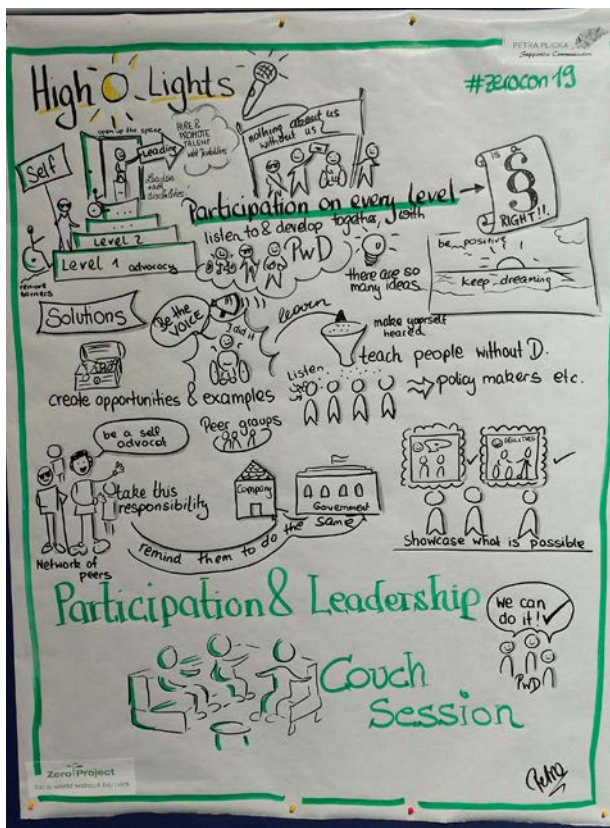 PETRA PLICKA
Supportive Communication
#zerocon19
High Lights
open up the space
Leading
HIRE &
PROMOTE
TALENT
with disabilities
nothing about us
without us
Self
Participation on every level
§
1. is a
2. RIGHT!!.
listen to & develop together, with
PwD
Level 2
Level 1 advocacy
remove
barriers
there are so
many ideas
be positive
keep dreaming
Solutions
Be the
VOICE
I did it
learn
make yourself
heared
teach people without D.
Listen
policy makers etc.
create opportunities & examples
Peer groups
be a self
advocat
take this
responsibility
Network of
peers
Company
Government
remind them to do the same
ABILITIES
Showcase what is possible
Participation & Leadership
we can
do it!
PwD
Couch
Session
Petra
Zero Project
for a world without barriers